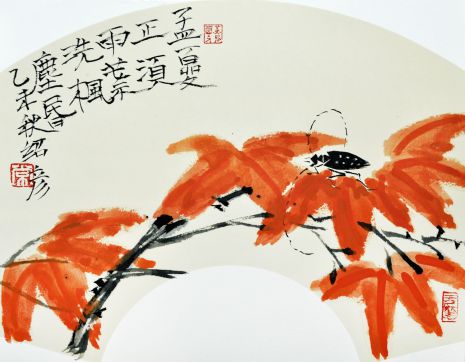 孟夏
正須
雨
洗楓
塵昏
乙未秋紹彥